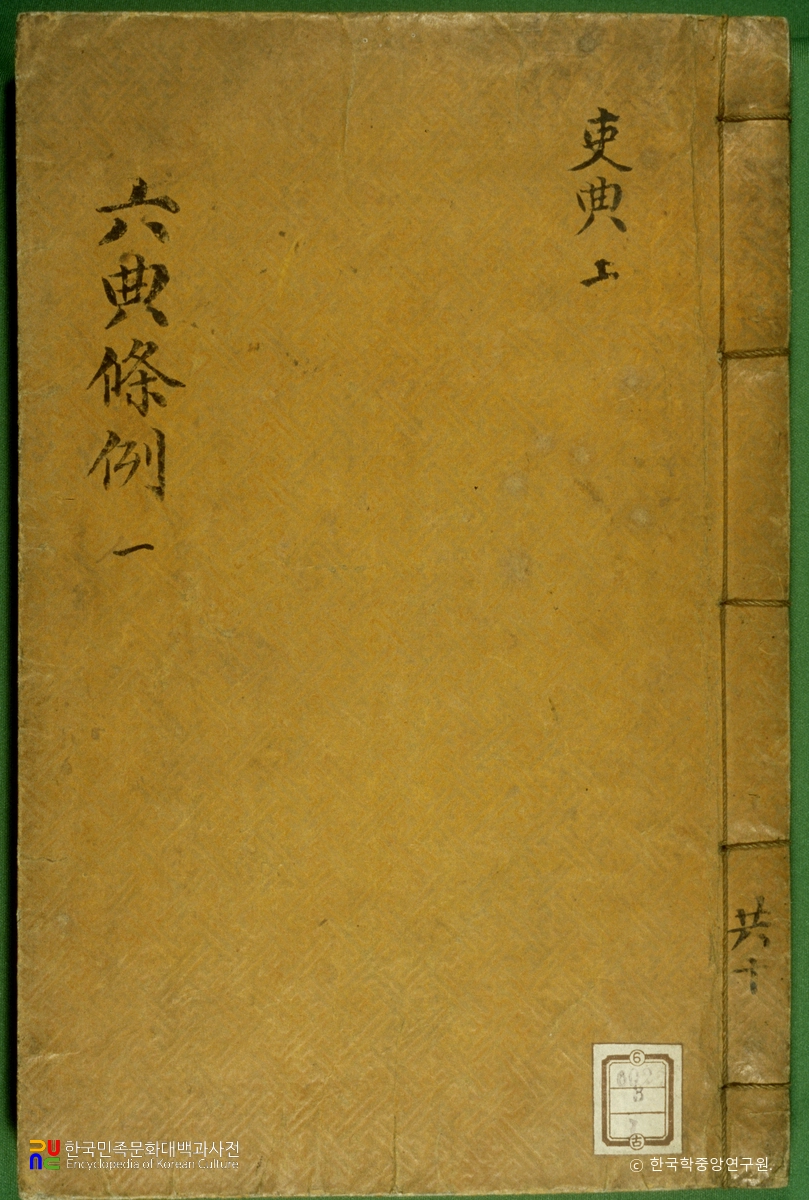 吏典 上
六典條例 一
共十
6
3
古
한국민족문화대백과사전
Encyclopedia of Korean Culture
© 한국학중앙연구원